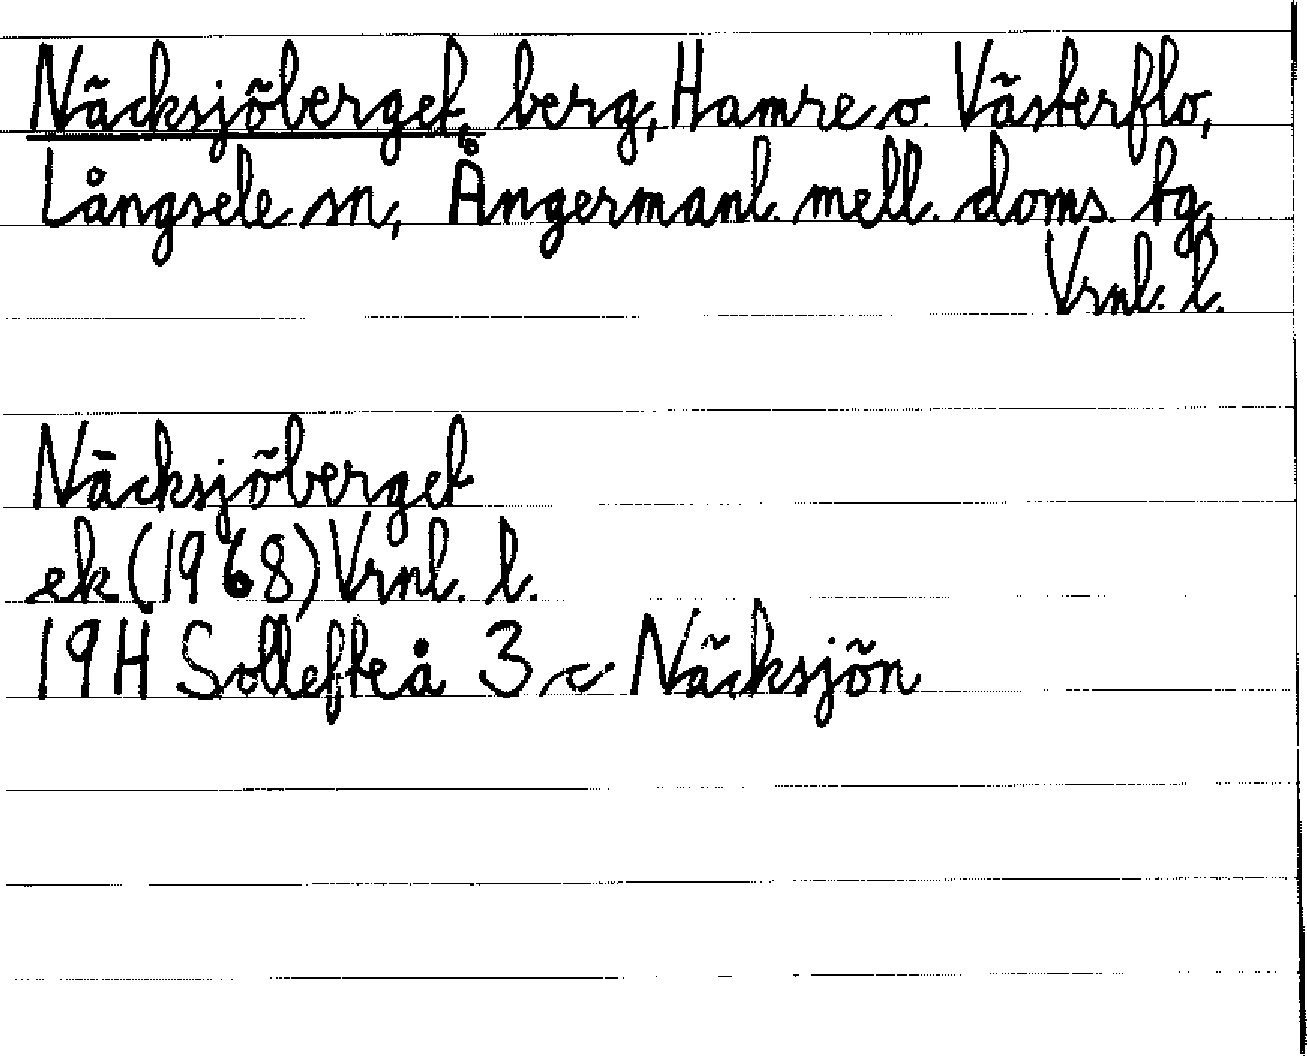 Näcksjöberget, berg, Hamre o. Västerflo,
Långsele sn, Ångermanl. mell. doms. tg,
Vrnl. l.
Näcksjöberget
ek (1968) Vrnl. l.
19H Sollefteå 3 c Näcksjön